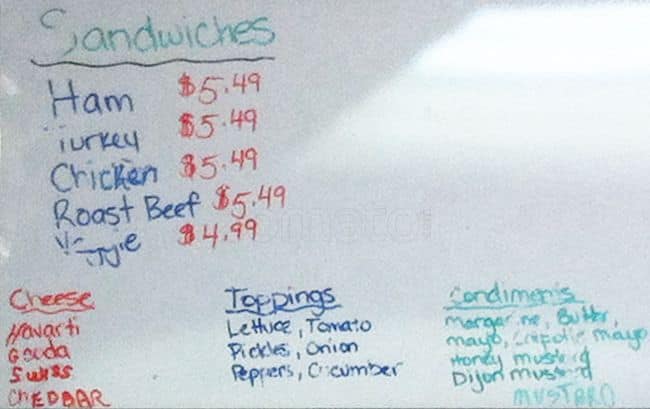 Sandwiches
Ham $5.49
Turkey $5.49
Chicken $5.49
Roast Beef $5.49
$4.99
Cheese
Havarti
Gouda
Swiss
CHEDDAR
Toppings
Lettuce, Tomato
Pickles, Onion
Peppers, Cucumber
Condiments
margarine, Butter,
mayo, Chipotle mayo
Honey mustard
Dijon mustard
MUSTARD